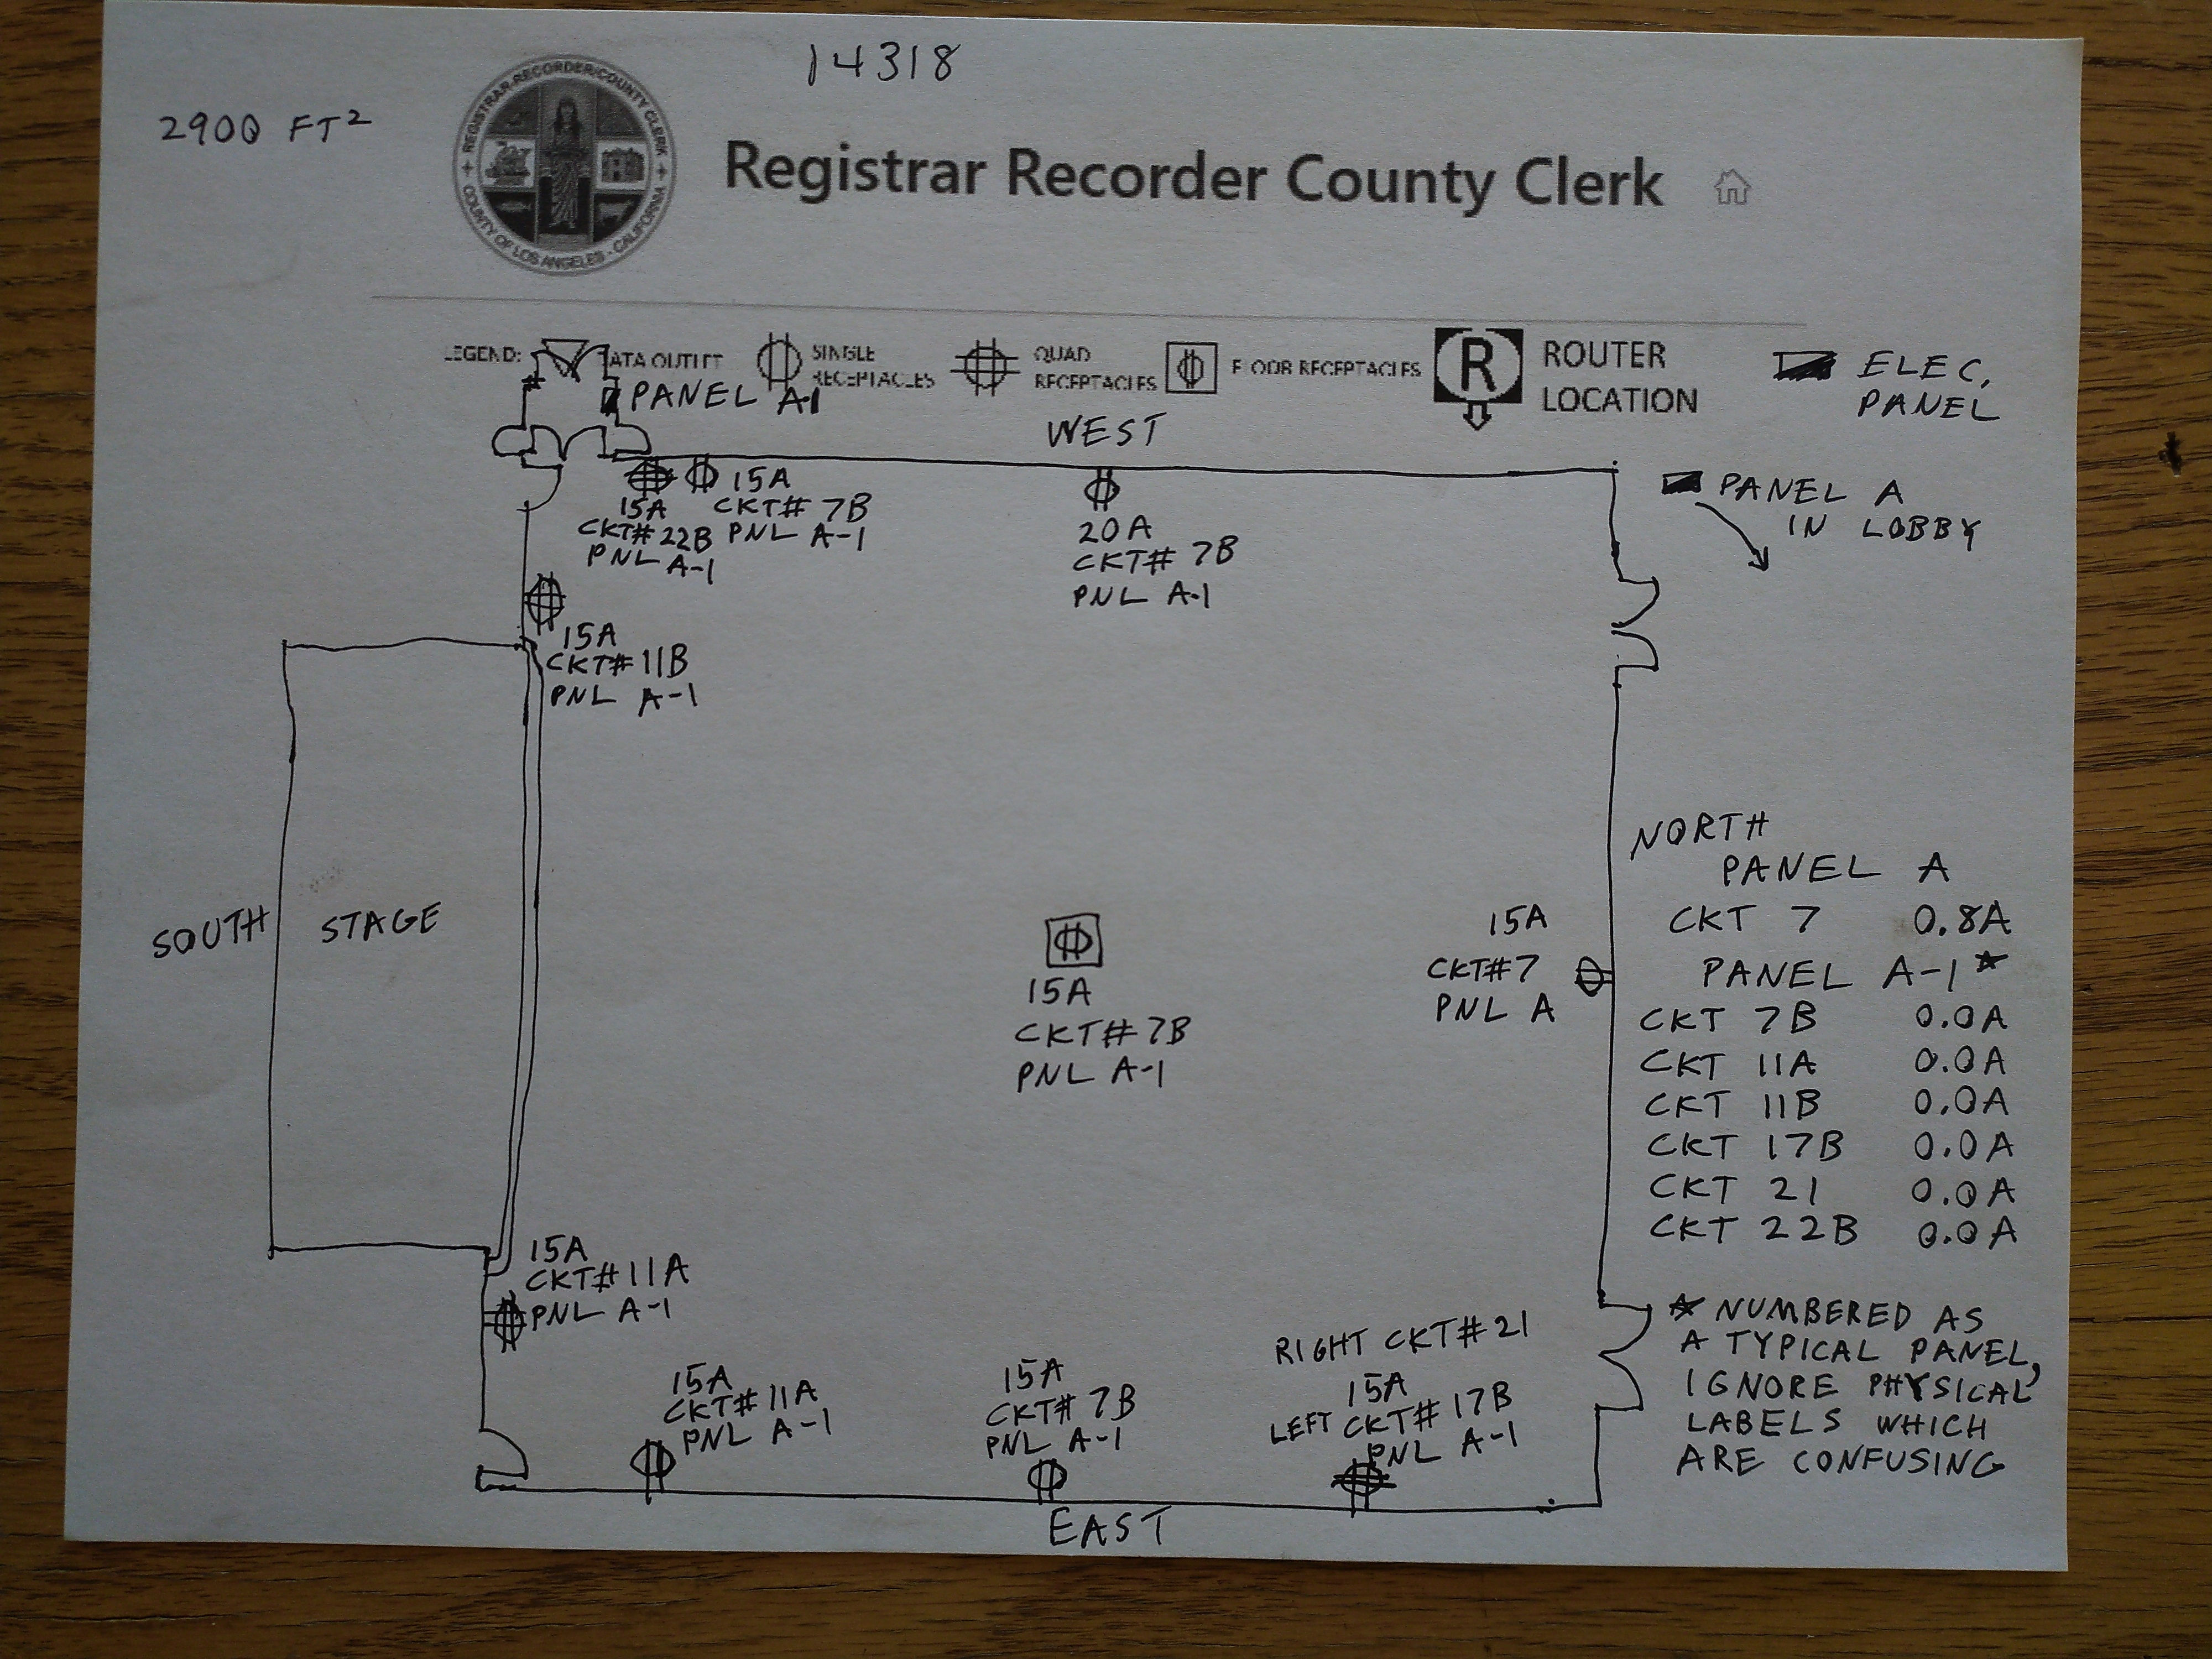 14318
2900 FT²
REGISTRAR-RECORDER/COUNTY CLERK
COUNTY OF LOS ANGELES - CALIFORNIA
Registrar Recorder County Clerk
LEGEND:
ATA OUTLET
SINGLE
RECEPTACLES
QUAD
RECEPTACLES
FLOOR RECEPTACLES
R
ROUTER
LOCATION
ELEC.
PANEL
PANEL A-1
WEST
15A
CKT# 22B
PNL A-1
15A
CKT# 7B
PNL A-1
20A
CKT# 7B
PNL A-1
PANEL A
IN LOBBY
15A
CKT# 11B
PNL A-1
SOUTH
STAGE
15A
CKT# 7B
PNL A-1
15A
CKT#7
PNL A
NORTH
PANEL A
CKT 7 0.8A
PANEL A-1 *
CKT 7B 0.0A
CKT 11A 0.0A
CKT 11B 0.0A
CKT 17B 0.0A
CKT 21 0.0A
CKT 22B 0.0A
15A
CKT# 11A
PNL A-1
15A
CKT# 11A
PNL A-1
15A
CKT# 7B
PNL A-1
RIGHT CKT# 21
15A
LEFT CKT# 17B
PNL A-1
* NUMBERED AS
A TYPICAL PANEL,
IGNORE PHYSICAL
LABELS WHICH
ARE CONFUSING
EAST